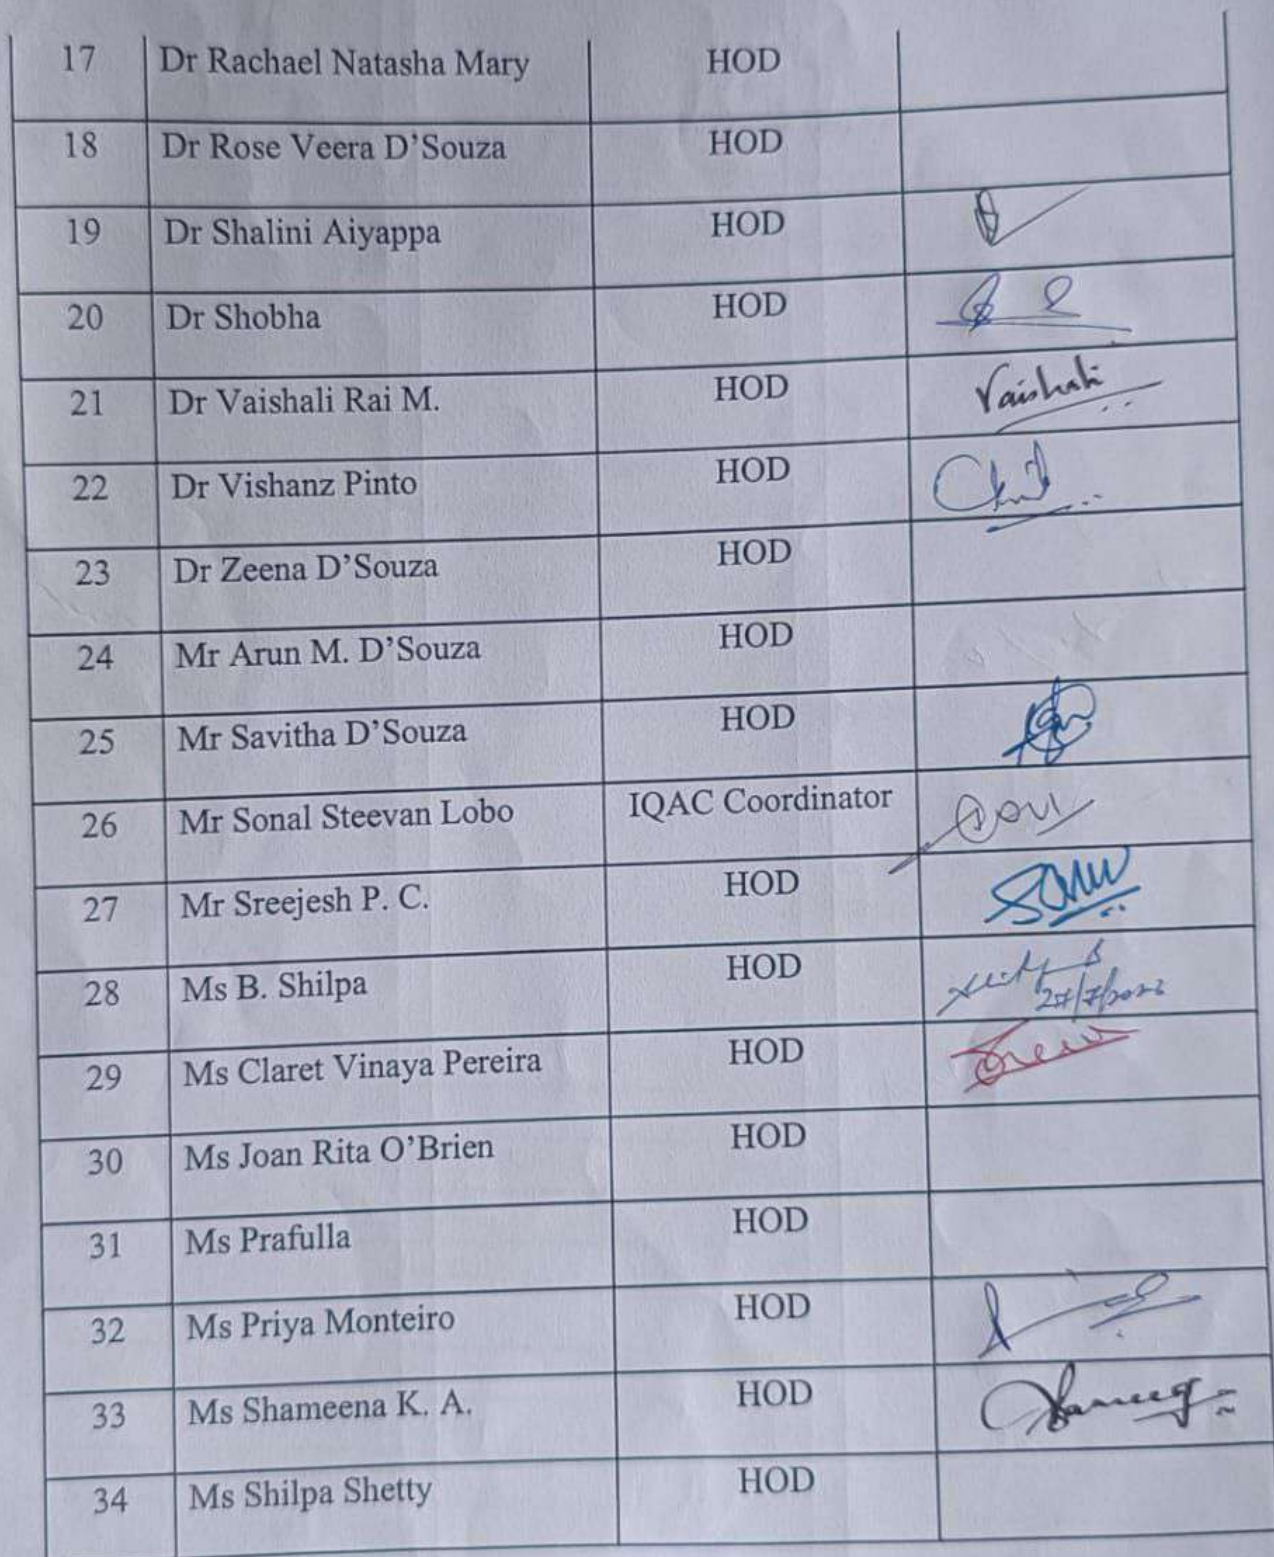 17 Dr Rachael Natasha Mary HOD
18 Dr Rose Veera D'Souza HOD
19 Dr Shalini Aiyappa HOD
20 Dr Shobha HOD
21 Dr Vaishali Rai M. HOD Vaishali
22 Dr Vishanz Pinto HOD
23 Dr Zeena D'Souza HOD
24 Mr Arun M. D'Souza HOD
25 Mr Savitha D'Souza HOD
26 Mr Sonal Steevan Lobo IQAC Coordinator
27 Mr Sreejesh P. C. HOD
28 Ms B. Shilpa HOD
29 Ms Claret Vinaya Pereira HOD
30 Ms Joan Rita O'Brien HOD
31 Ms Prafulla HOD
32 Ms Priya Monteiro HOD
33 Ms Shameena K. A. HOD
34 Ms Shilpa Shetty HOD